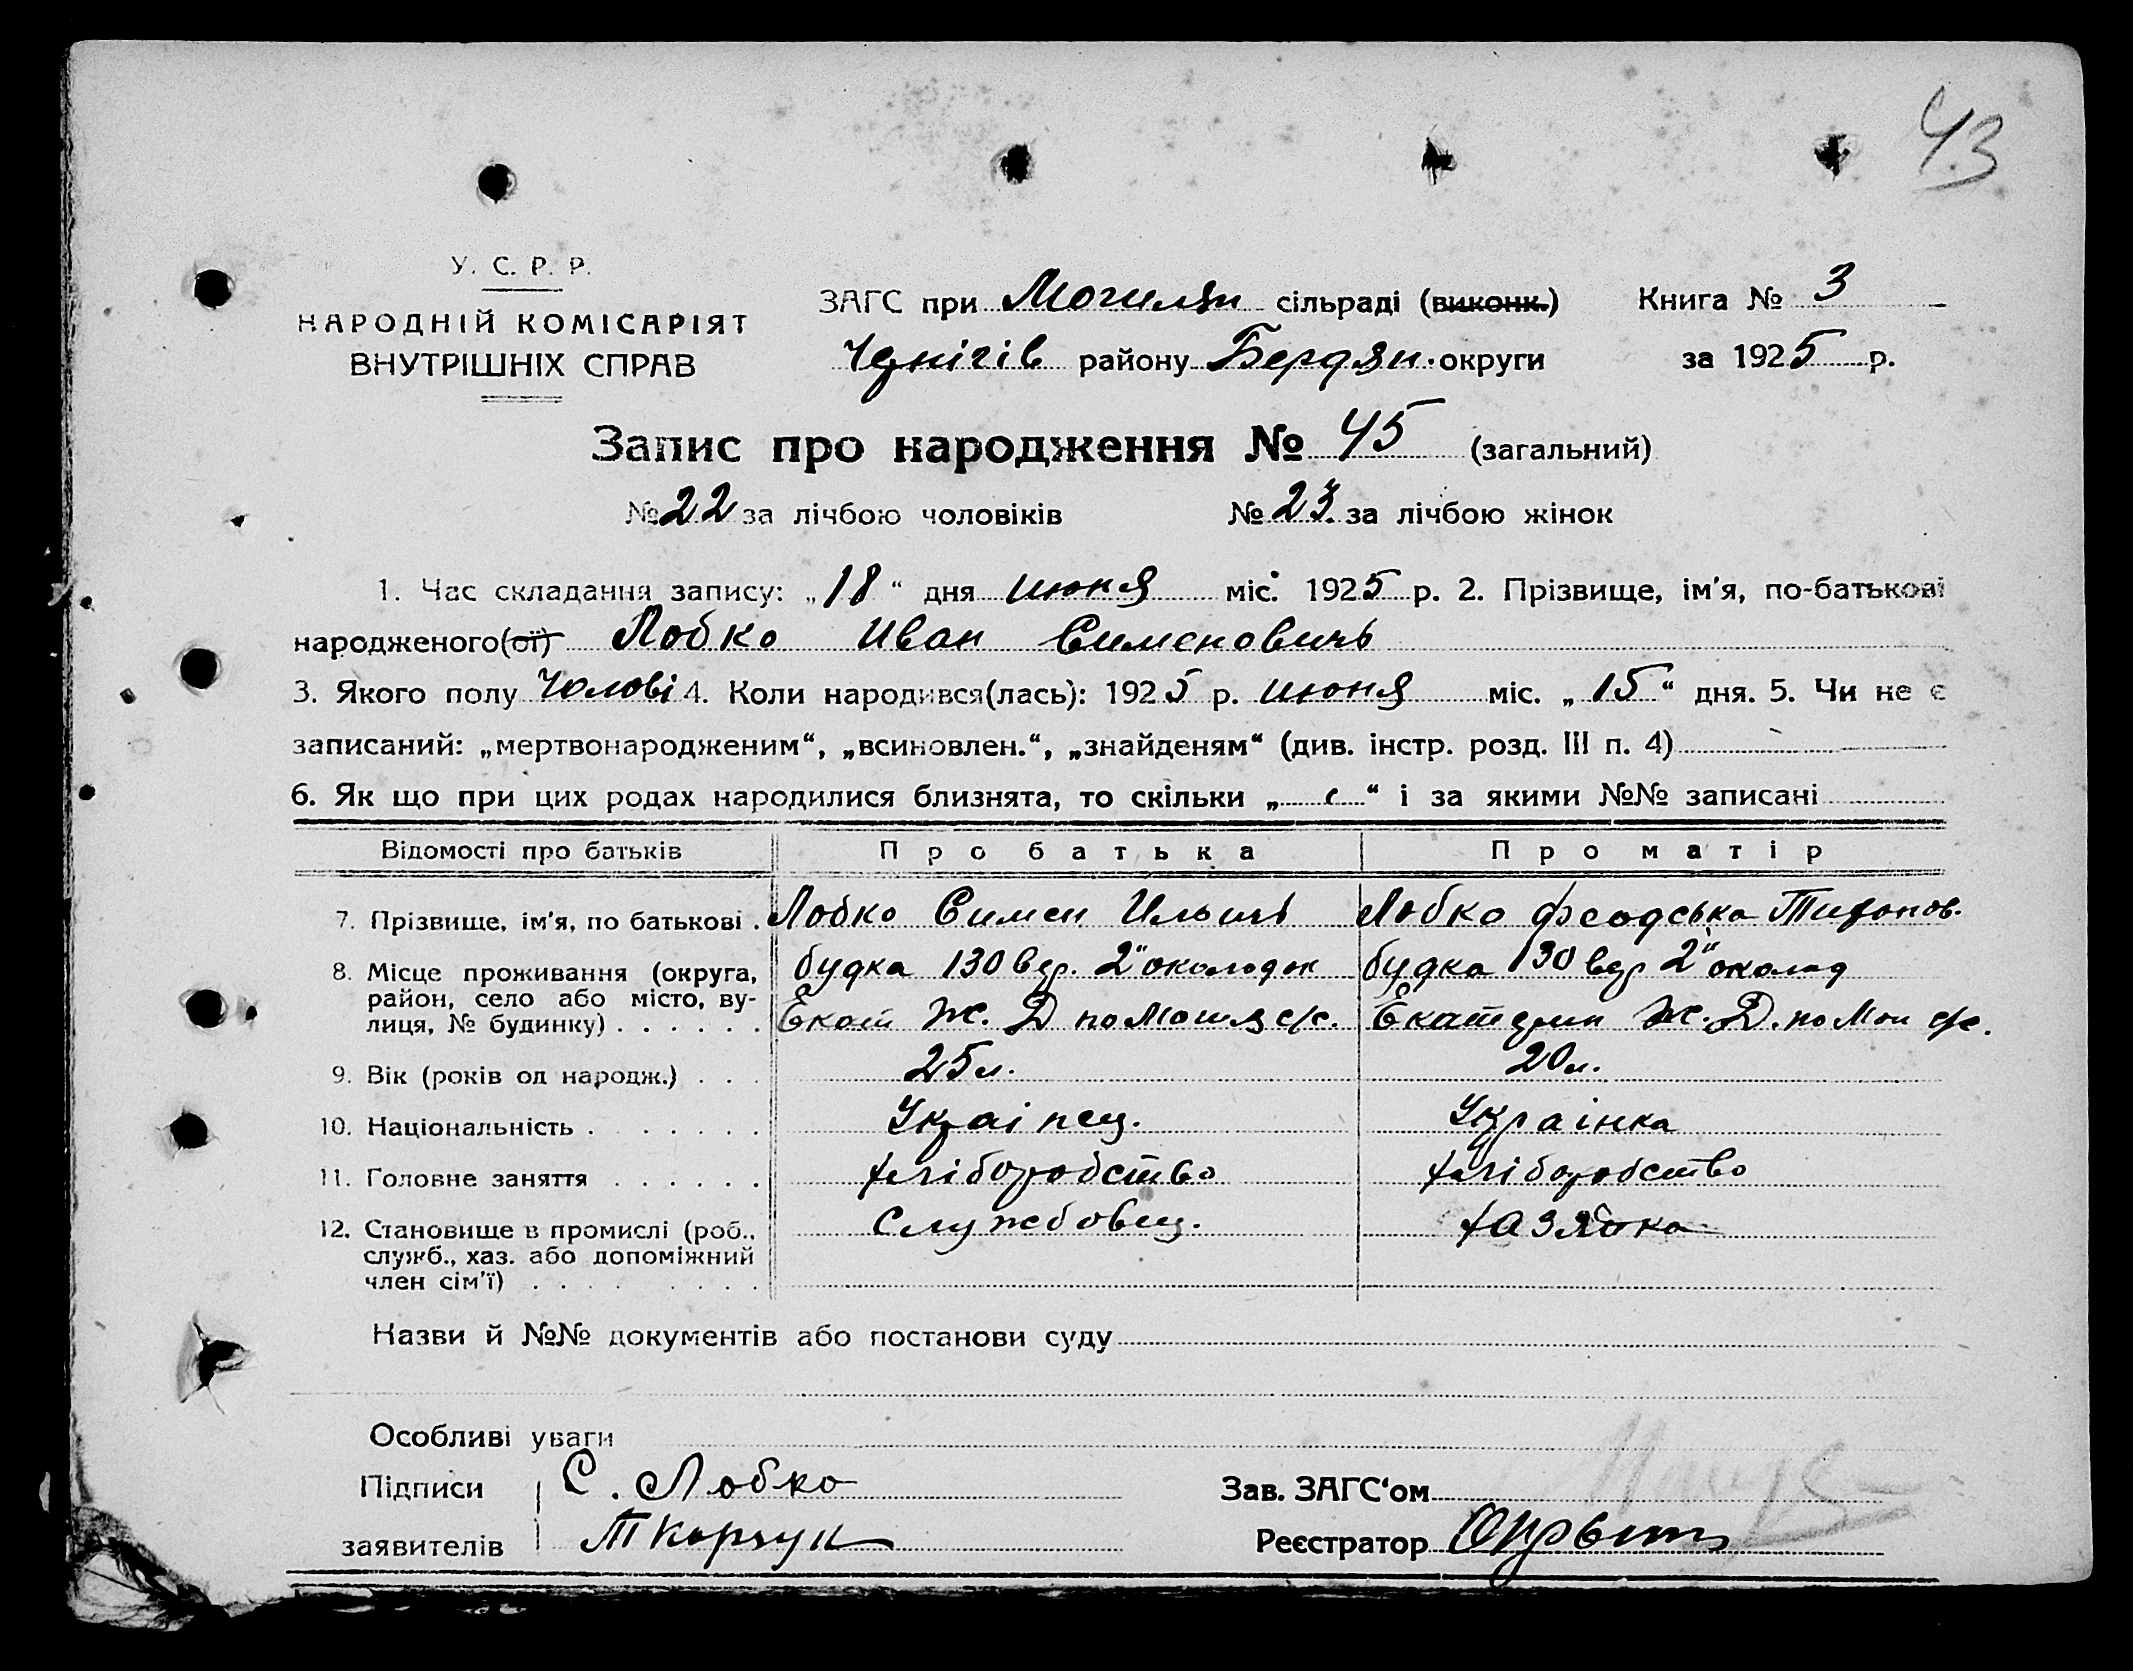 43
У. С. Р. Р.
НАРОДНІЙ КОМІСАРІЯТ
ВНУТРІШНІХ СПРАВ
ЗАГС при Могилян сільраді (виконк.) Книга № 3
Черніг​ів району Бердян. округи за 1925 р.
Запис про народження № 45 (загальний)
№ 22 за лічбою чоловіків № 23 за лічбою жінок
1. Час складання запису: „18“ дня июня міс. 1925 р. 2. Прізвище, ім'я, по-батькові
народженого(ої) Лобко Иван Сименовичь
3. Якого полу Чолові 4. Коли народився(лась): 1925 р. июня міс. „15“ дня. 5. Чи не є
записаний: „мертвонародженим“, „всиновлен.“, „знайденям“ (див. інстр. розд. III п. 4)
6. Як що при цих родах народилися близнята, то скільки „ “ і за якими №№ записані
Відомості про батьків Про батька Про матір
7. Прізвище, ім'я, по батькові . Лобко Симен Ильичь Лобко Феодська
8. Місце проживання (округа, район, село або місто, вулиця, № будинку) . . . . . . будка 130 вер. 2" околодок будка 130 вер 2" околод
Екат Ж. Д по с/с. Ж. Д. по с/с.
9. Вік (років од народж.) . . . 25 л. 20 л.
10. Національність . . . . . . . Українец. Українка
11. Головне заняття . . . . . . хліборобство хліборобство
12. Становище в промислі (роб., служб., хаз. або допоміжний член сім'ї) . . . . . . . . Службовец. хазяйка
Назви й №№ документів або постанови суду
Особливі уваги
Підписи С. Лобко Зав. ЗАГС'ом
заявителів Реєстратор